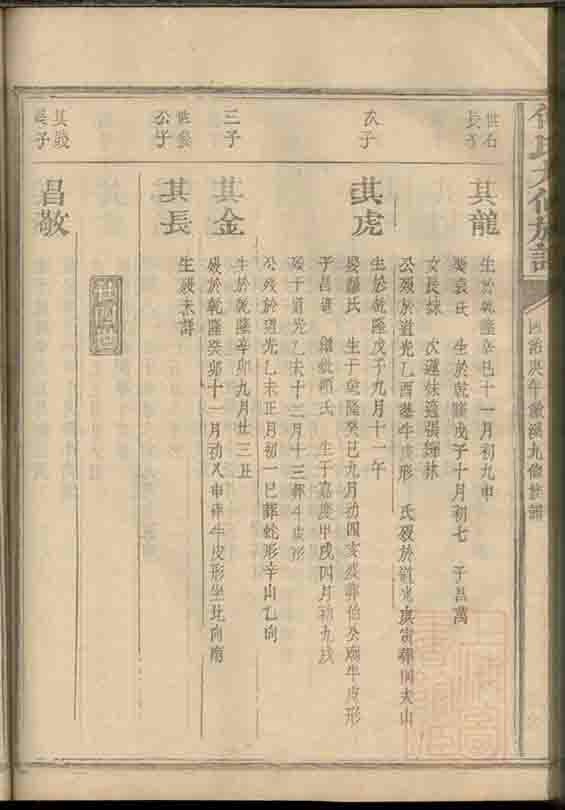 世石
長子
其龍
生於乾隆辛巳十一月初九申
娶袁氏 生於乾隆戊子十月初七 子昌萬
女長妹 次蓮妹適張
公歿於道光乙酉葬牛皮形 氏歿於道光庚寅葬同大山
次子
其虎
生於乾隆戊子九月十二午
氏 生于乾隆癸巳九月初四亥歿葬伯公廟牛皮形
子昌 氏 生于嘉慶甲戌四月初九戌
歿于道光乙未十二月十三葬牛皮形
公歿於道光乙未正月初一巳葬蛇形辛山乙向
三子
其金
生於乾隆辛卯九月廿三丑
歿於乾隆癸卯十一月初又申葬牛皮形坐北向南
公子
其長
生歿未詳
其
長子
昌敬
九修族譜